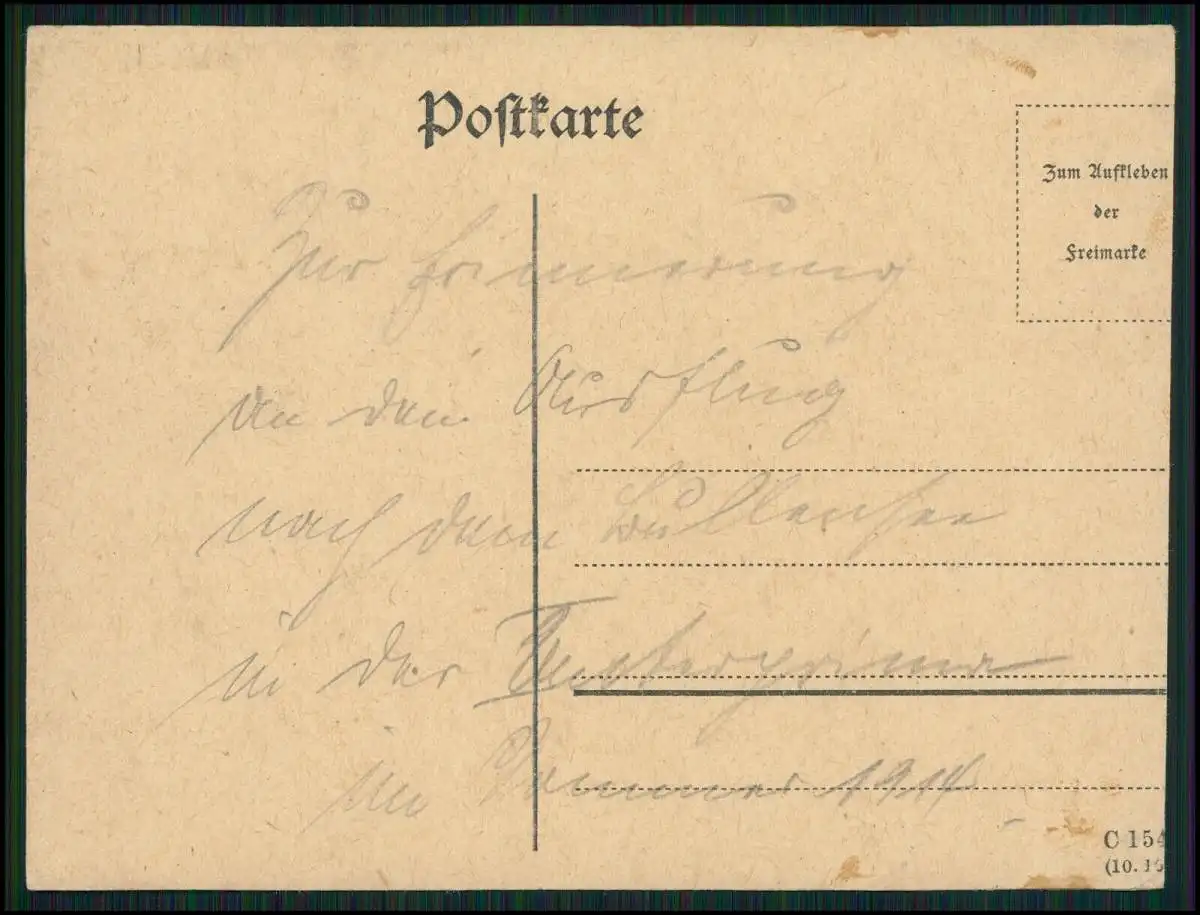 Postkarte
Zum Aufkleben
der
Freimarke
Zur Erinnerung
an den Ausflug
nach dem Bullensee
in der Unterprima
im Sommer 1914
C 154
(10. 16